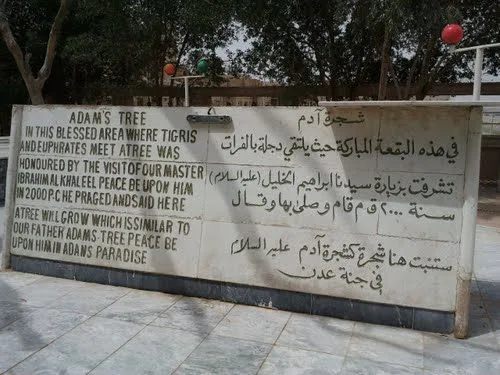 ADAM'S TREE
IN THIS BLESSED AREA WHERE TIGRIS
AND EUPHRATES MEET ATREE WAS
HONOURED BY THE VISIT OF OUR MASTER
IBRAHIM AL KHALEEL PEACE BE UPON HIM
IN 2000 P.C HE PRAGED AND SAID HERE
A TREE WILL GROW WHICH IS SIMILAR TO
OUR FATHER ADAMS-TREE PEACE BE
UPON HIM IN ADANS PARADISE
شجرة آدم
في هذه البقعة المباركة حيث يلتقي دجلة بالفرات
تشرفت بزيارة سيدنا ابراهيم الخليل (عليه السلام)
سنة ٢٠٠٠ ق.م قام وصلى بها وقال
ستنبت هنا شجرة كشجرة آدم عليه السلام
في جنة عدن